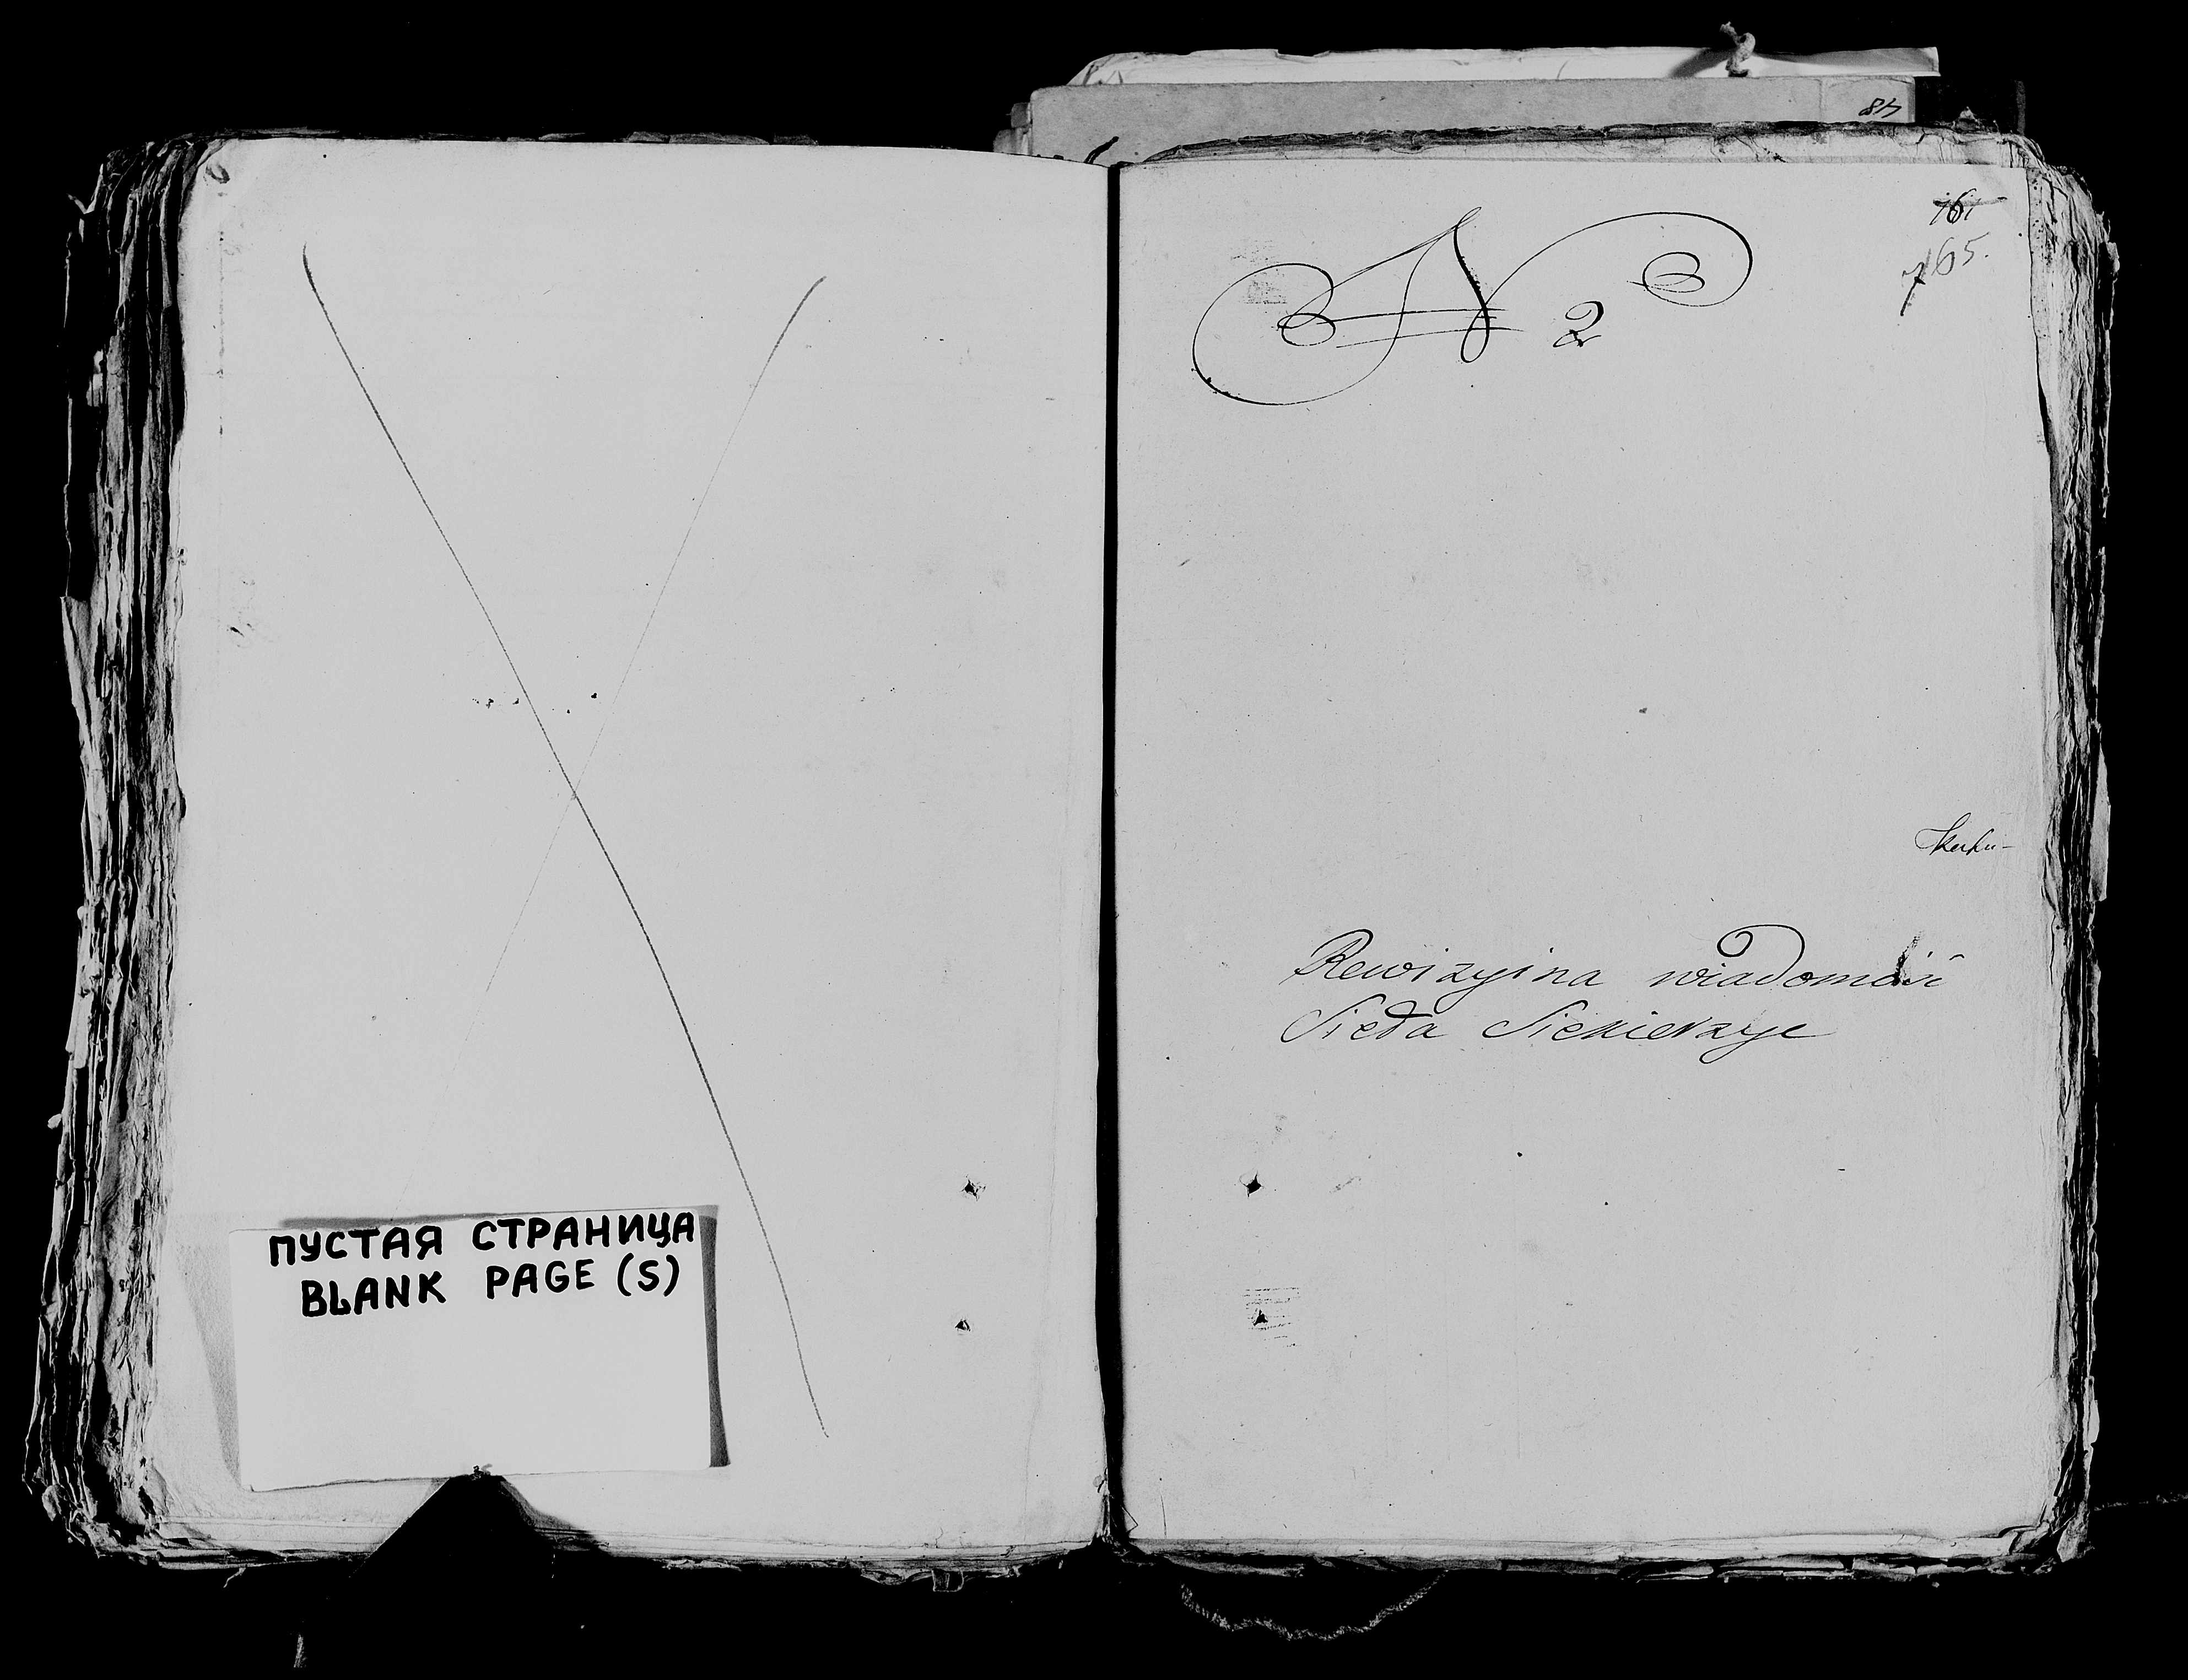 ПУСТАЯ СТРАНИЦА
BLANK PAGE (S)
48
161
765.
N 2
Rewizyina wiadomość
Sieła Siekierzyc